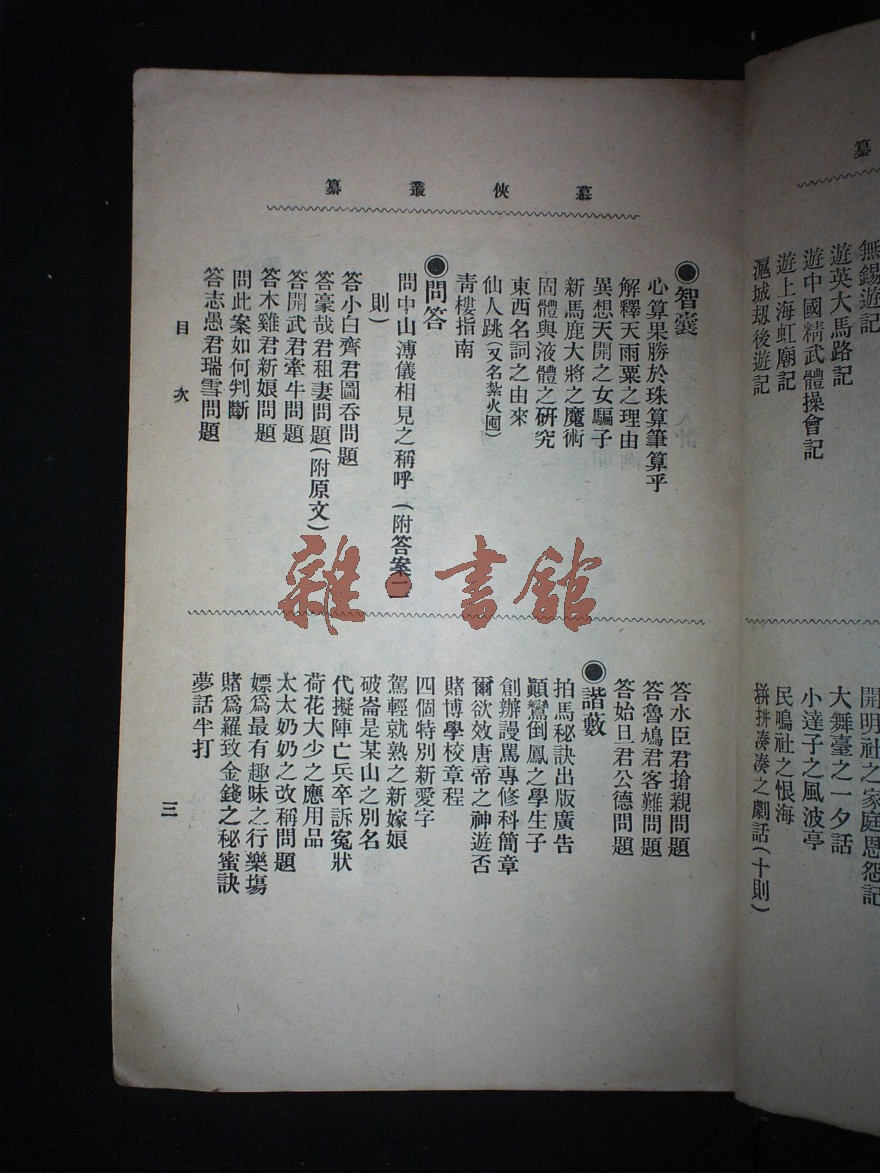 纂
無錫遊記
遊英大馬路記
遊中國精武體操會記
遊上海虹廟記
滬城刼後遊記
開明社之家庭恩怨記
大舞臺之一夕話
小達子之風波亭
民鳴社之恨海
拼拼湊湊之劇話(十則)
慕俠叢纂
◉智囊
心算果勝於珠算筆算乎
解釋天雨粟之理由
異想天開之女騙子
新馬鹿大將之魔術
固體與液體之研究
東西名詞之由來
仙人跳(又名紮火囤)
靑樓指南
◉問答
問中山溥儀相見之稱呼(附答案一
則)
答小白齊君圖呑問題
答豪哉君租妻問題(附原文)
答開武君牽牛問題
答木雞君新娘問題
問此案如何判斷
答志愚君瑞雪問題
答水臣君搶親問題
答魯鳩君客難問題
答始旦君公德問題
◉諧藪
拍馬秘訣出版廣告
顚鸞倒鳳之學生子
創辦謾罵專修科簡章
爾欲效唐帝之神遊否
賭博學校章程
四個特別新愛字
駕輕就熟之新嫁娘
破崙是某山之別名
代擬陣亡兵卒訴寃狀
荷花大少之應用品
太太奶奶之改稱問題
嫖爲最有趣味之行樂塲
賭爲羅致金錢之秘蜜訣
夢話半打
目次
三
雜·書館